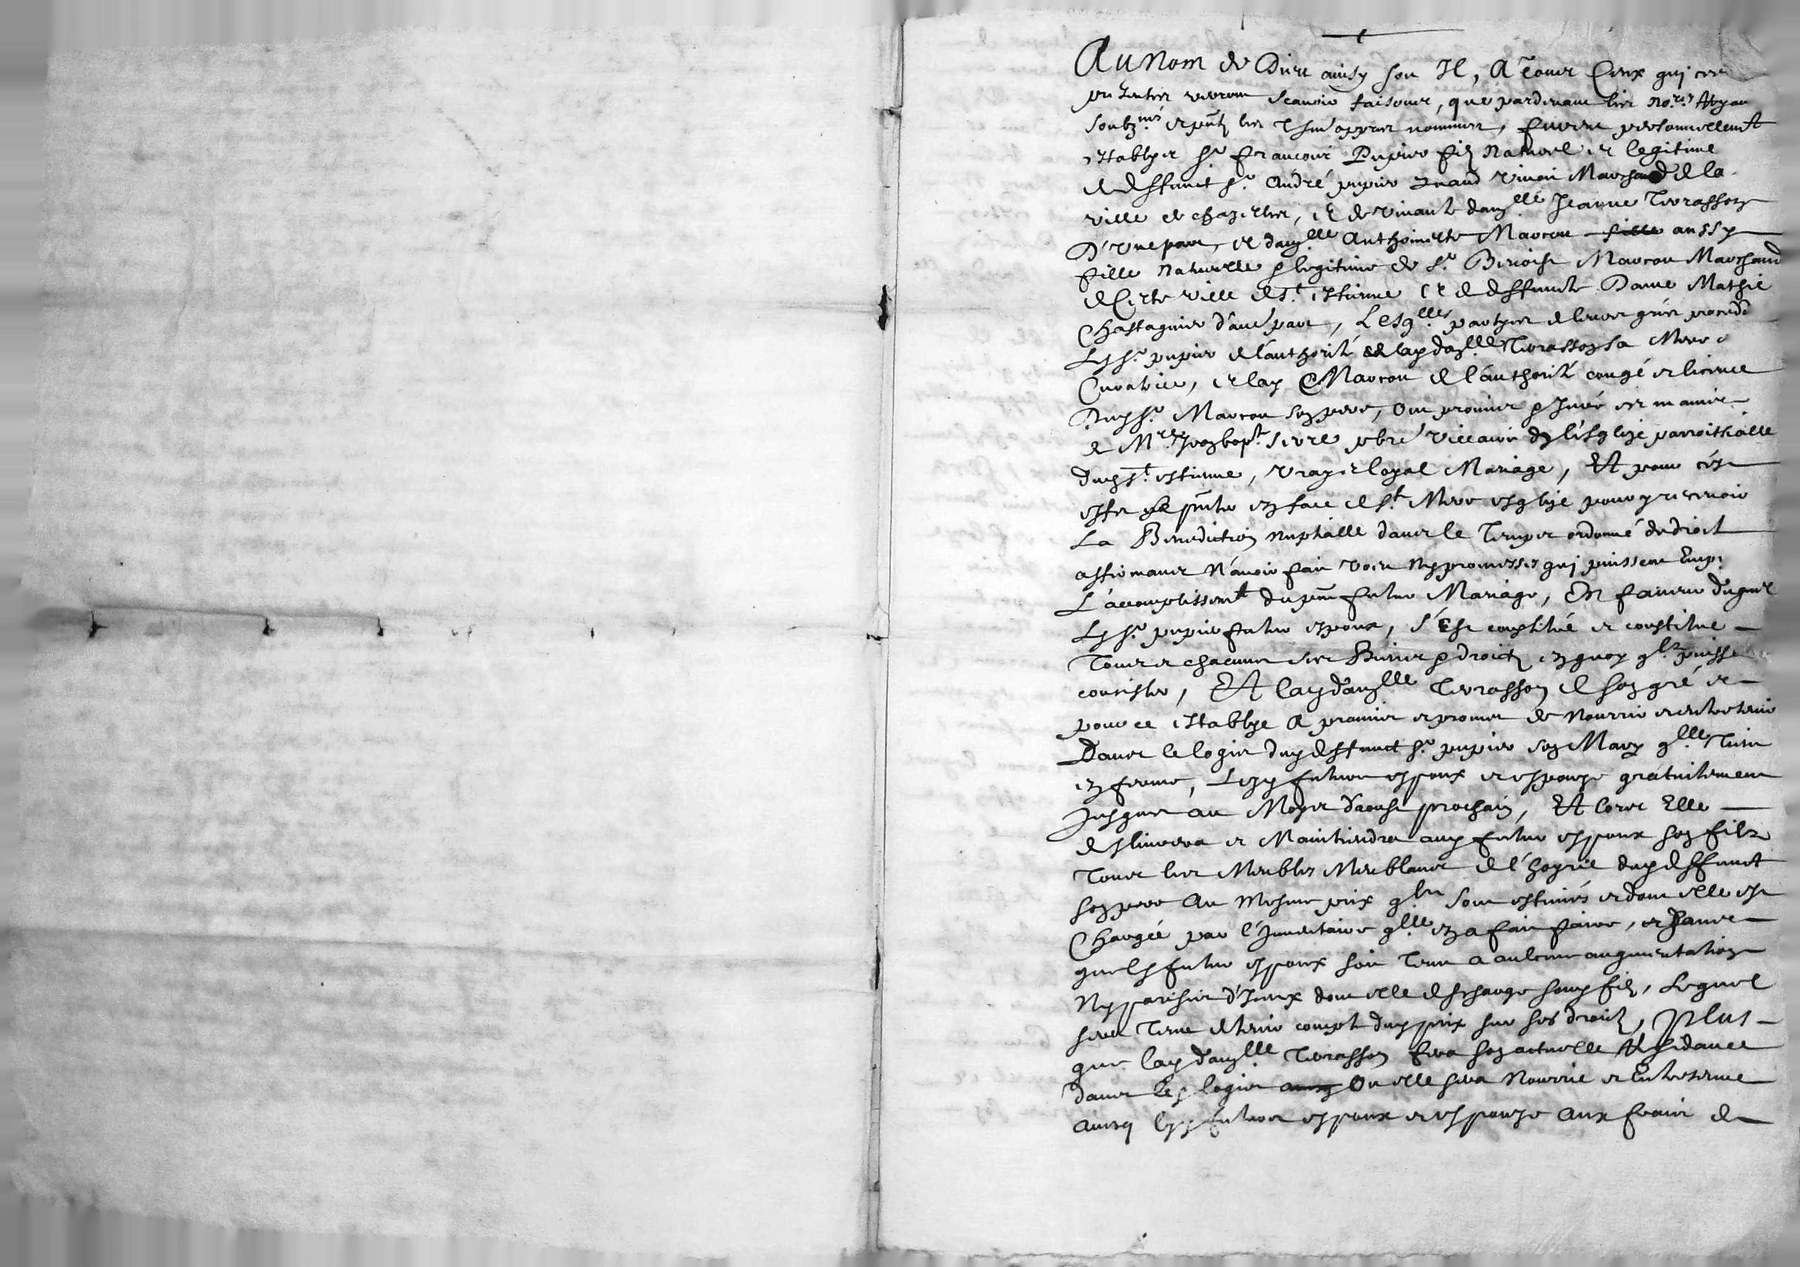 Au nom de Dieu ainsy soit Il, A tous Ceux qui ces
presentes verront scavoir faisons, que pardevant les no.res Royaux
soubz.nés et pñtz les tesm. appres nommes, furent personnellemt
establyes sr. francois Pupier filz naturel et legitime
de deffunct sr. André pupier quand vivoit Marchand de la
ville de chazelles, et de vivante damlle Jeanne Terrasson
D'une part, et damlle Anthoinette Marcou aussy
fille naturelle & legitime de sr. Benoist Marcou Marchand
de Cette ville de St. estienne et de deffuncte Dame Mathie
Chastagnier d'autre part, Lesqlles partyes de leurs grés procedt
Ledt sr. pupier de l'authorité de lad damlle Terrasson sa Mere &
Curatrice, et lad Marcou de l'authorité congé et licence
Dud sr. Marcou son pere, Ont promis & Juré es mains
de Mre Jean bapt. serre pbre viccaire de l'esglize parroissialle
dud St. estienne, vray et loyal Mariage, Et pour cest
effet se pñter en face de Ste. Mere esglize pour y recevoir
La Benediction nuptialle dans le Temps ordonné de droit
affirmants n'avoir fait voeu ny promesses qui puissent Emp.
L'accomplissemt du pñt futur Mariage, En faveur duquel
Led sr. pupier futur espoux, s'est constitué et constitue
Tous et chacuns ses Biens & droits en quoy qlz puissent
consister, Et lad damlle Terrasson de son gré et
pour ce establye a promis et promet de nourrir et entretenir
Dans le logis dud deffunct sr. pupier son Mary qlle tient
en ferme, Lesd futurs espoux et espouze gratuitement
Jusques au Moys d'aoust prochain, Et lors Elle
deslivrera et Maintiendra aud futur espoux son fils
Tous les Meubles Meublants de l'hoyrie dud deffunct
son pere au mesme prix qlz sont estimés et dont elle est
Chargée par l'Inventaire qlle en a fait faire, et sans
que led futur espoux soit tenu a aulcune augmentation
Ny parisis d'Iceux dont elle descharge sond filz, Lequel
sera tenu de tenir compt dud prix sur ses droitz, Plus
que lad damlle Terrasson fera son actuelle Residance
dans led logis Ou elle sera Nourrie et Entretenue
Ainsy lesd futurs espoux et espouze aux frais de